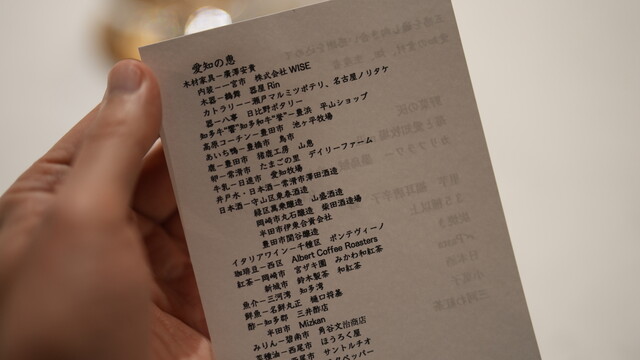 愛知の恵
木材家具－廣澤安貴
内装－一宮市　株式会社WISE
木器－鶴舞　器屋Rin
カトラリー－瀬戸マルミツポテリ、名古屋ノリタケ
器－八事　日比野ポタリー
知多牛"響"知多和牛"誉"－豊浜　平山ショップ
高原コーチン－豊田市　池ヶ平牧場
あいち鴨－豊橋市　鳥市
鹿－豊田市　猪鹿工房　山恵
卵－常滑市　たまごの里　デイリーファーム
牛乳－日進市　愛知牧場
井戸水・日本酒－常滑市澤田酒造
日本酒－守山区東春酒造
緑区萬乗醸造　山盛酒造
岡崎市丸石醸造　柴田酒造場
半田市伊東合資会社
豊田市関谷醸造
イタリアワイン－千種区　ポンテヴィーノ
珈琲豆－西区　Albert Coffee Roasters
紅茶－岡崎市　宮ザキ園　みかわ和紅茶
新城市　鈴木製茶　和紅茶
魚介－三河湾　知多湾
鮮魚－名鮮丸正　樋口将基
酢－知多郡　三井酢店
半田市　Mizkan
みりん－碧南市　角谷文治商店
西尾市　ほうろく屋
サントルチオ